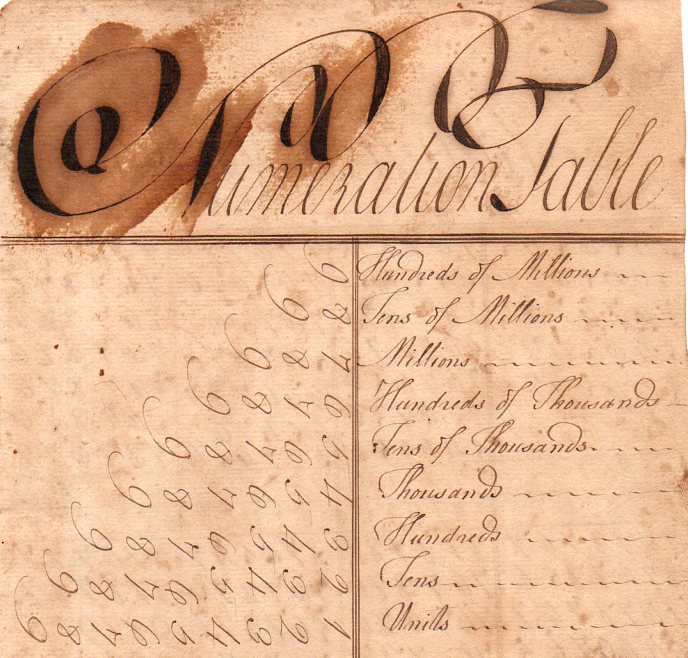 Numeration Table
9 Hundreds of Millions
9 8 Tens of Millions
9 8 7 Millions
9 8 7 6 Hundreds of Thousands
9 8 7 6 5 Tens of Thousands
9 8 7 6 5 4 Thousands
9 8 7 6 5 4 3 Hundreds
9 8 7 6 5 4 3 2 Tens
9 8 7 6 5 4 3 2 1 Units